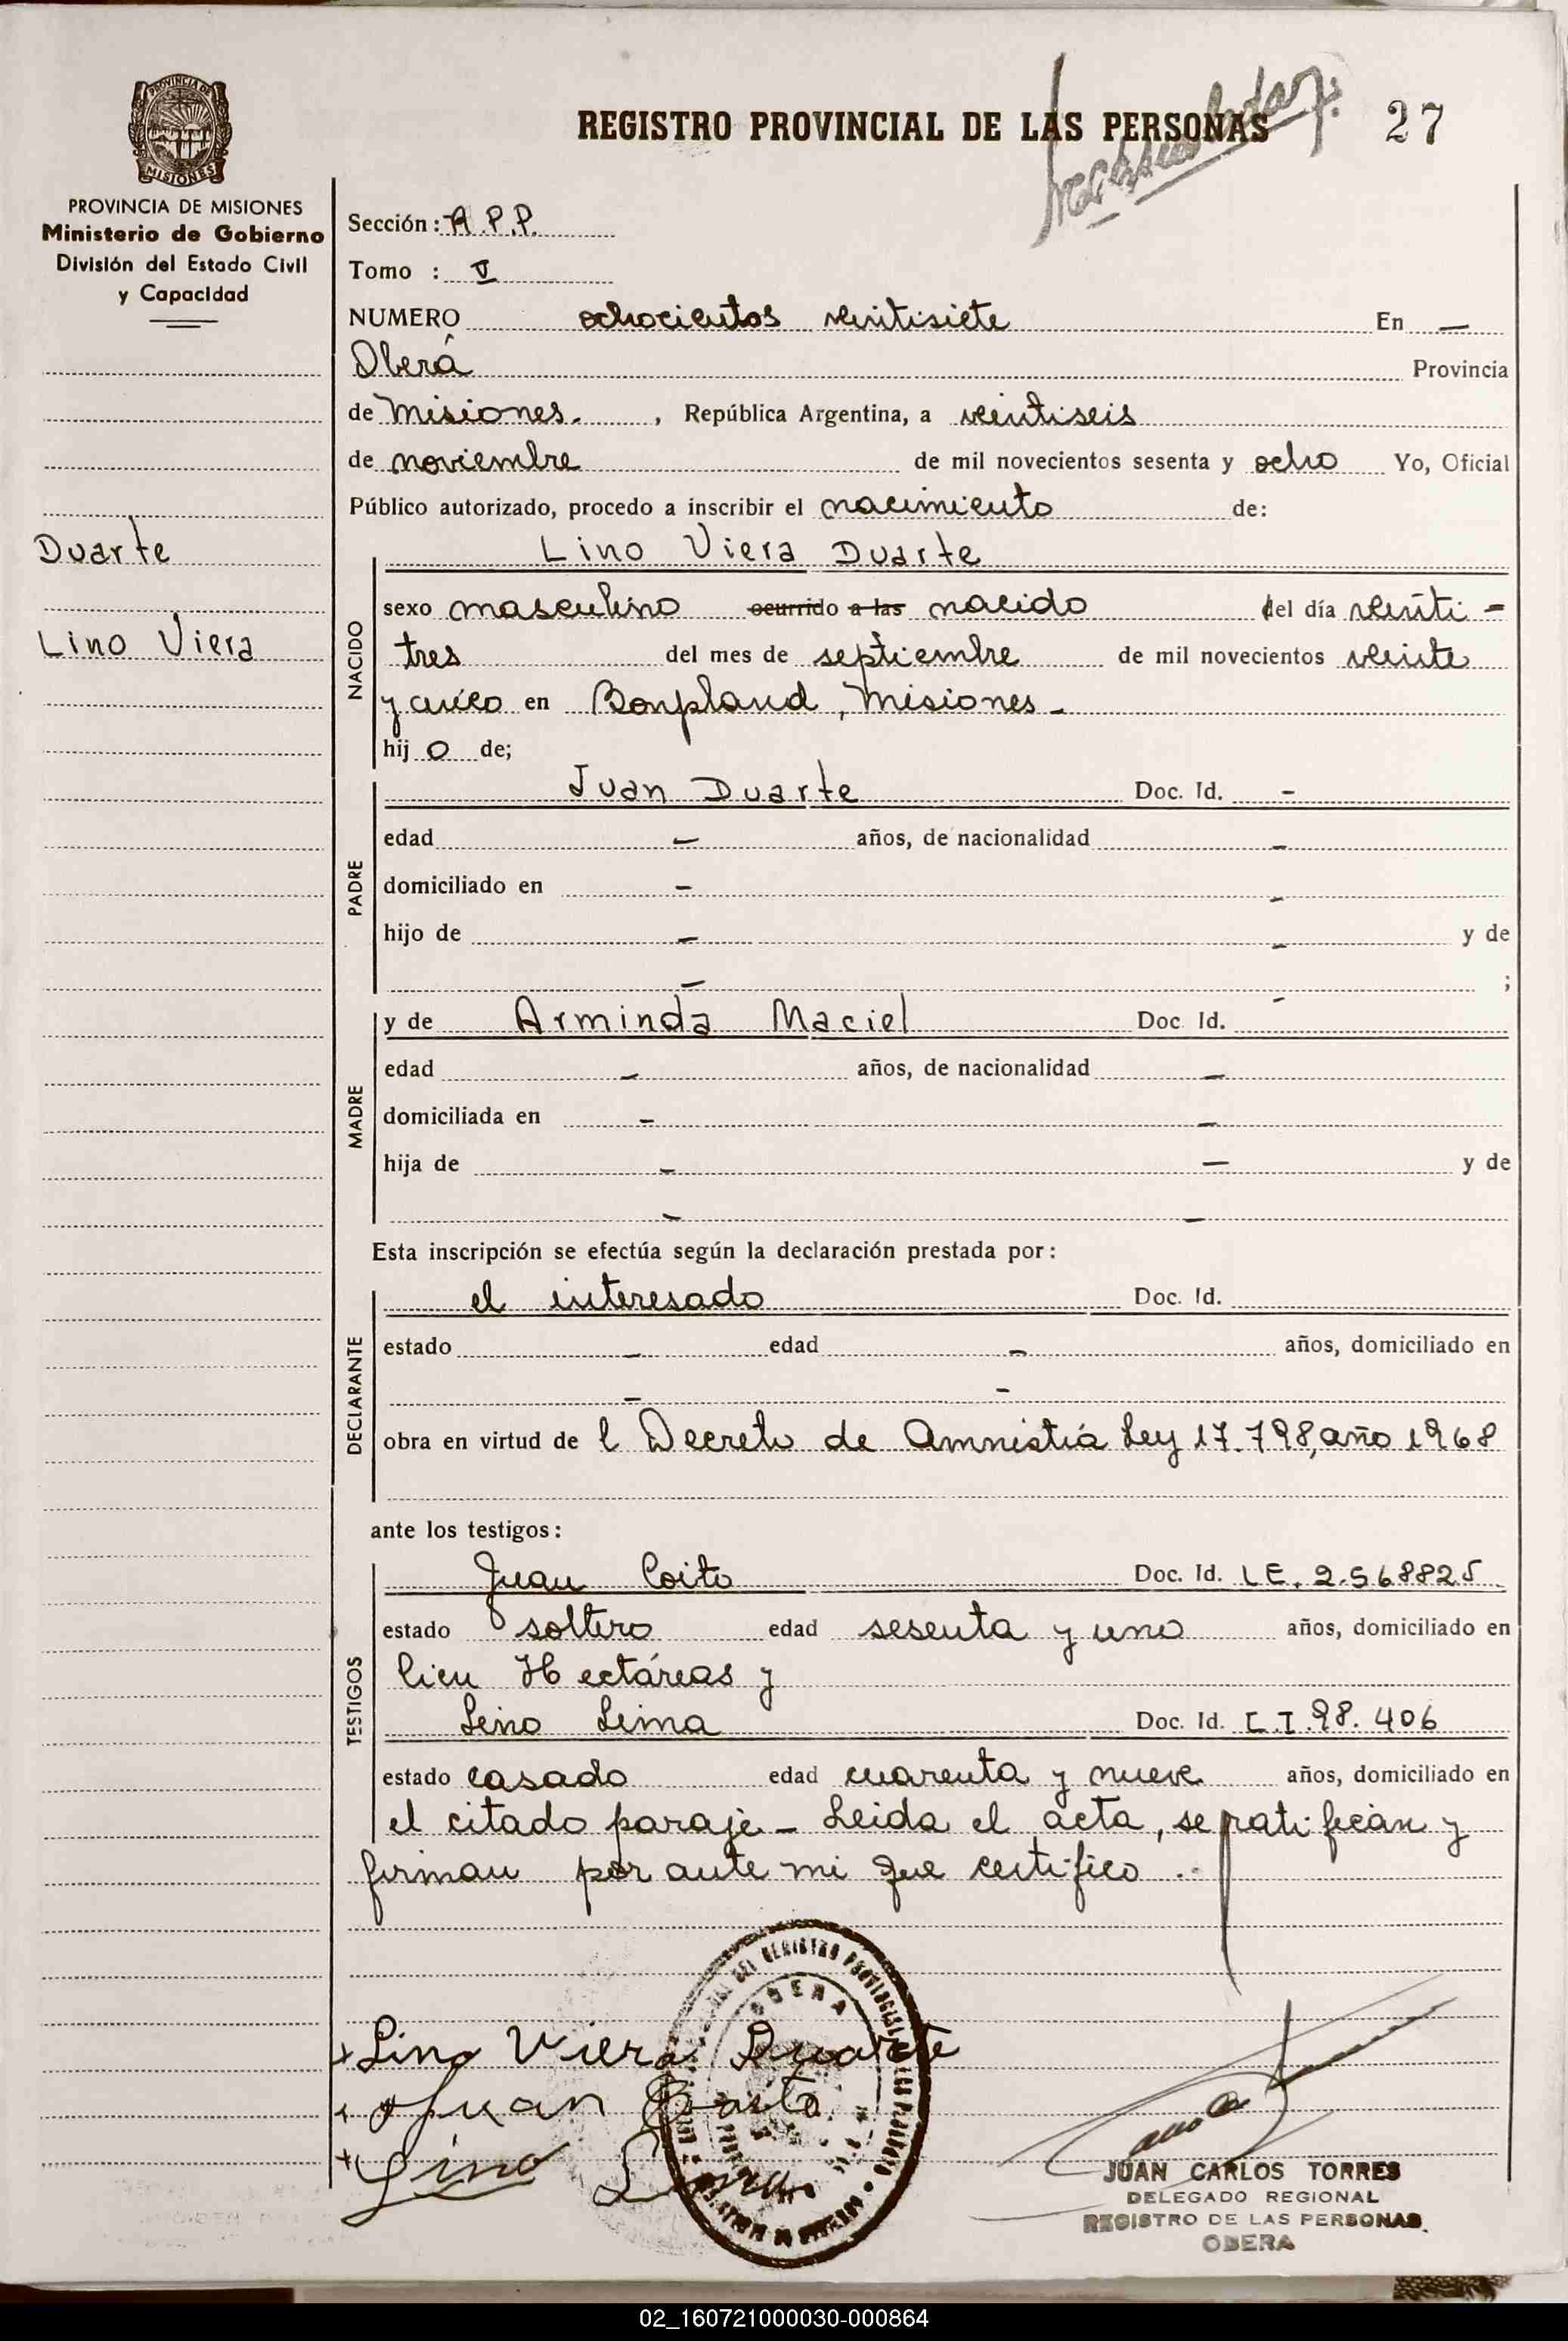 PROVINCIA DE
MISIONES
REGISTRO PROVINCIAL DE LAS PERSONAS
27
PROVINCIA DE MISIONES
Ministerio de Gobierno
División del Estado Civil
y Capacidad
Sección : A.P.P.
Tomo : V
NUMERO ochocientos veintisiete En —
Oberá Provincia
de Misiones. , República Argentina, a veintiseis
de noviembre de mil novecientos sesenta y ocho Yo, Oficial
Público autorizado, procedo a inscribir el nacimiento de:
Duarte
Lino Viera
NACIDO
Lino Viera Duarte
sexo masculino ocurrido a las nacido del día veinti -
tres del mes de septiembre de mil novecientos veinte
y cinco en Bonpland, Misiones -
hij o de;
PADRE
Juan Duarte Doc. Id. -
edad - años, de nacionalidad -
domiciliado en - -
hijo de - - y de
- ;
MADRE
y de Arminda Maciel Doc Id. -
edad - años, de nacionalidad -
domiciliada en - -
hija de - - y de
- -
Esta inscripción se efectúa según la declaración prestada por:
DECLARANTE
el interesado Doc. Id.
estado - edad - años, domiciliado en
- -
obra en virtud de l Decreto de Amnistiá Ley 17.798, año 1968
ante los testigos:
TESTIGOS
Juan Coito Doc. Id. L E. 2.568825
estado soltero edad sesenta y uno años, domiciliado en
Cien Hectáreas y
Lino Lima Doc. Id. C.I. 98.406
estado casado edad cuarenta y nueve años, domiciliado en
el citado paraje - Leida el acta, se ratifican y
firman por ante mi que certifico . -
+ Lino Viera Duarte
+ Juan Coito
+ Lino Lima
OBERA
JUAN CARLOS TORRES
DELEGADO REGIONAL
REGISTRO DE LAS PERSONAS
OBERA
02_160721000030-000864